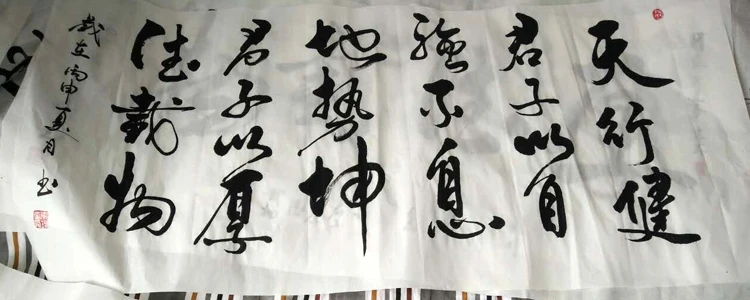 天行健
君子以自
强不息
地势坤
君子以厚
德载物
歲在丙申夏月书